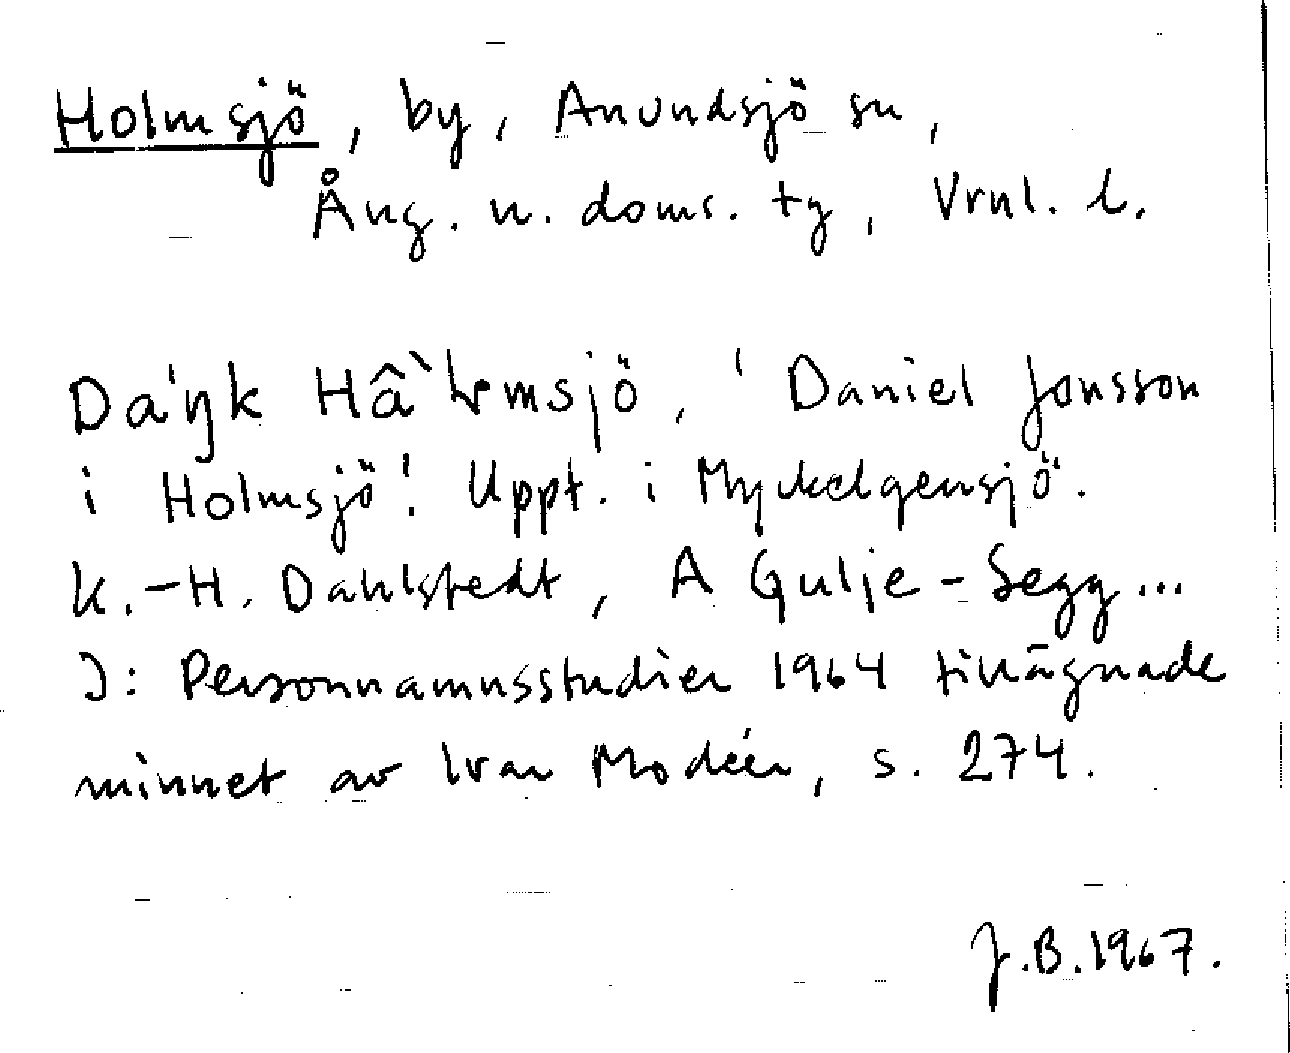 Holmsjö, by, Anundsjö sn,
Ång. n. doms. tg, Vrnl. l.
Da'ŋk Hâ`ɫmsjö, 'Daniel Jonsson
i Holmsjö'. Uppt. i Myckelgensjö.
K.-H. Dahlstedt, A Gulje-Segg...
I: Personnamnsstudier 1964 tillägnade
minnet av Ivar Modéer, s. 274.
J.B.1967.